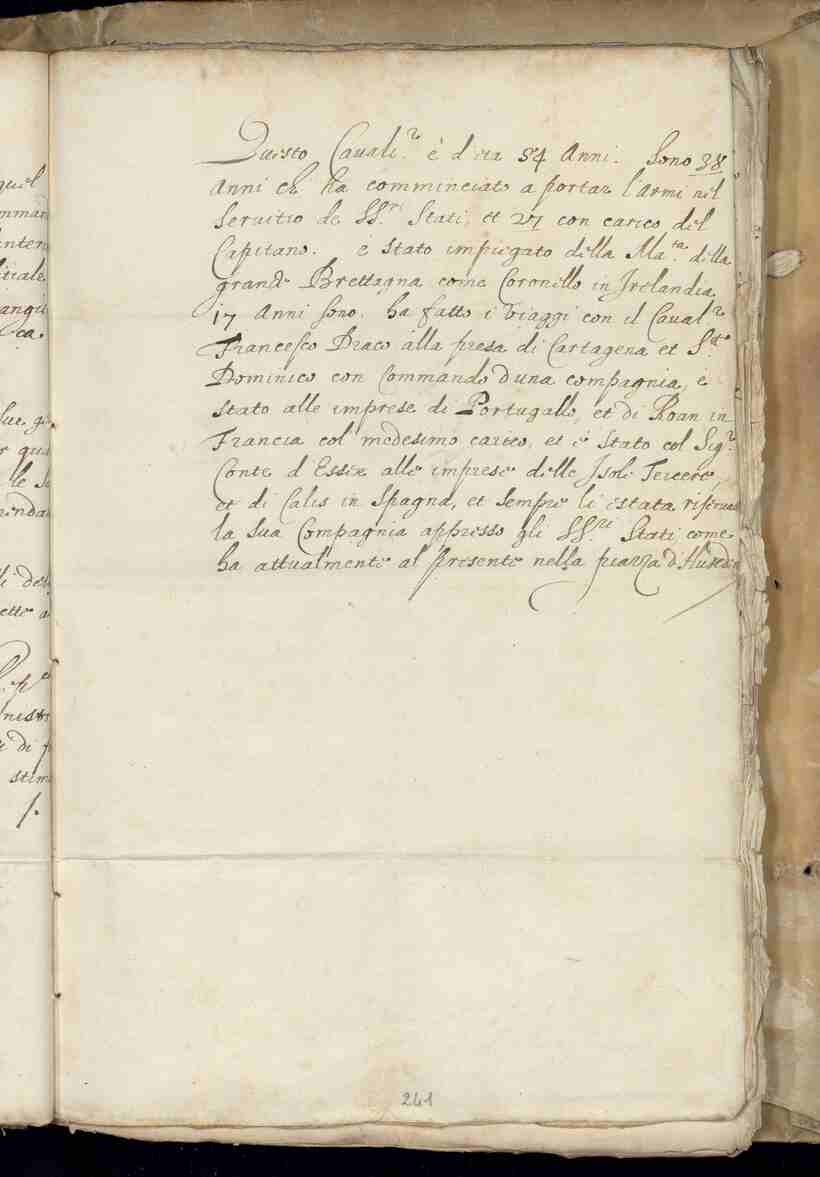 Questo Cavali.r è d eta 54 Anni. Sono 38
Anni ch ha comminciato a portar l'armi nel
Servitio de SS.ri Stati, et 27 con carico del
Capitano. è stato impiegato della Ma.ta della
grand Brettagna come Coronello in Irelandia
17 Anni sono. ha fatto i viaggi con il Caval.r
Francesco Draco alla presa di Cartagena et S.to
Dominico con Commando d'una compagnia, è
stato alle imprese di Portugallo, et di Roan in
Francia col medesimo carico, et è stato col Sig.r
Conte d Essex alle imprese delle Isole Tercere,
et di Calis in Spagna, et sempre li e stata
la sua Compagnia appresso gli SS.ri Stati, come
ha attualmente al presente nella piazza
241
quel
gran
ca.
le
di
stim